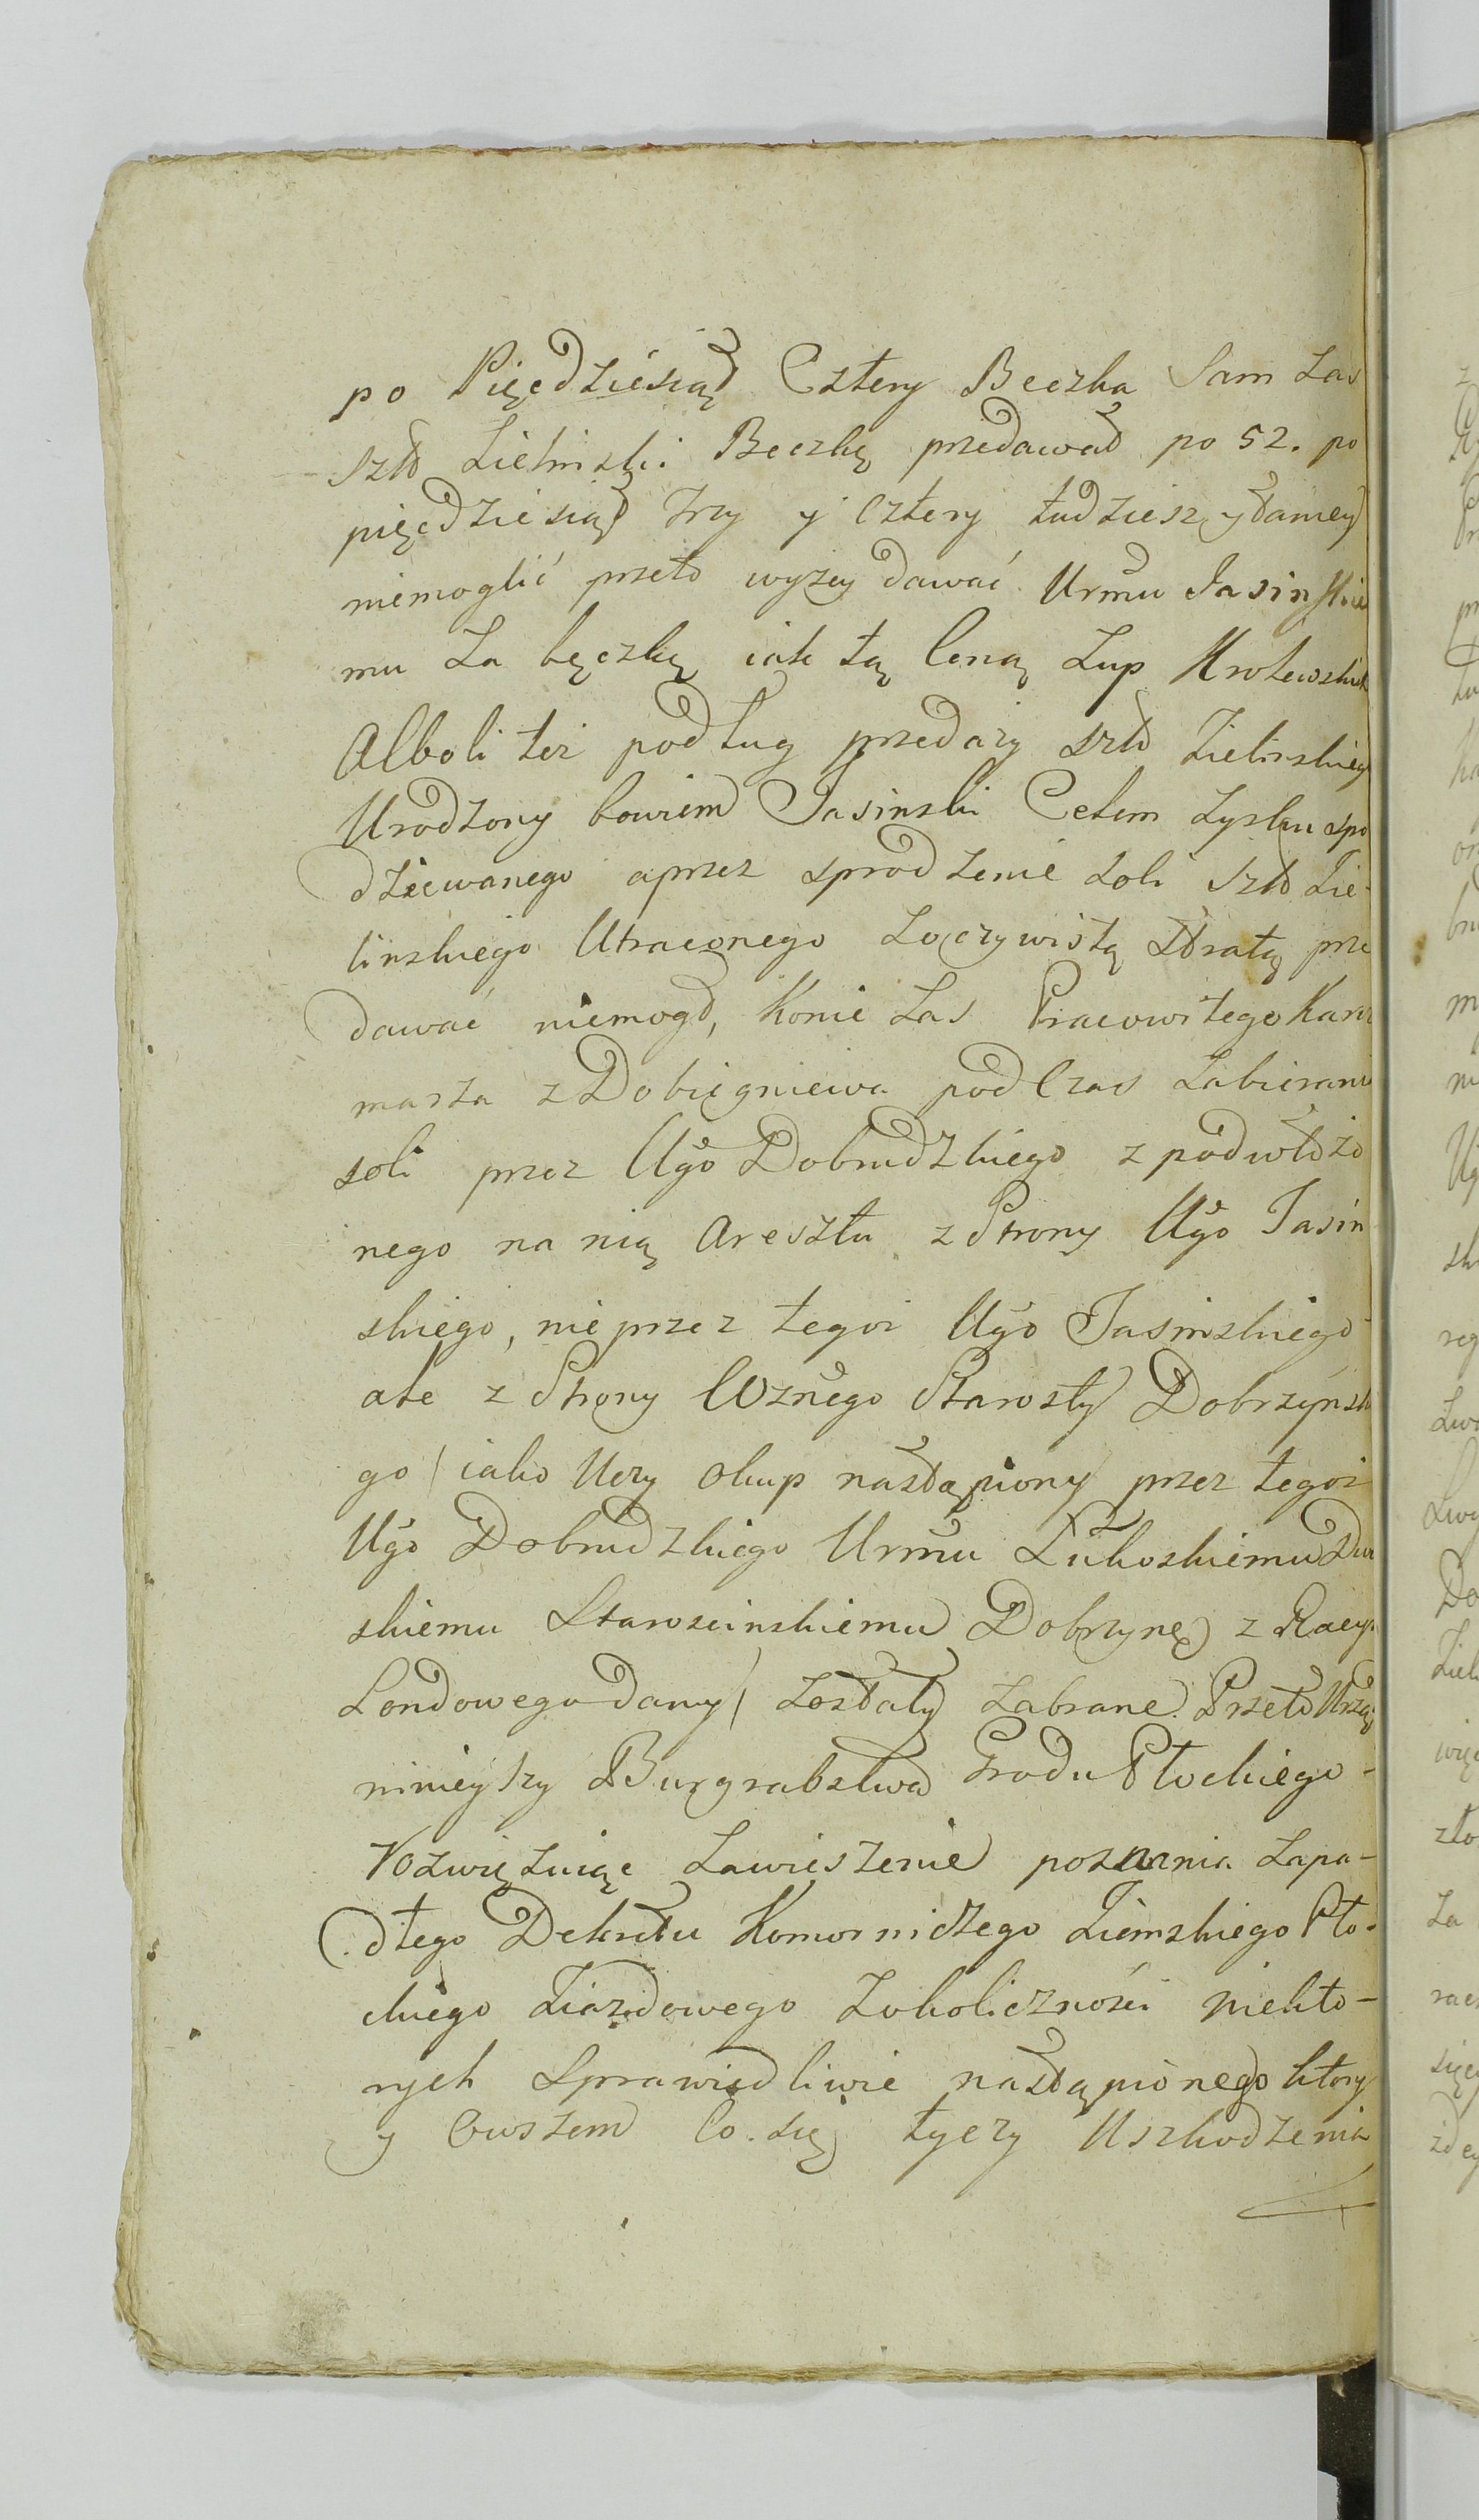 po Pięćdziesiąt Cztery Beczka Sam Zas
Szltt Zielinski Beczkę przedawał po 52. po
pięćdziesiąt trzy y Cztery tudziesz y taniey
niemoglić przeto wyzey dawać Urmu Jasinskie
mu Za bęczkę iak tą Ceną Zup Krolewskich
Alboli tez podług przedazy szltt Zielinskiego
Urodzony bowiem Jasinski Celem Zysku spo
dziewanego aprzez sprodzenie Soli Szltt Zie-
linskiego Utraconego Zoczywistą Stratą prze
dawać niemogł, Konie Zas Pracowitego Kar
marza z Dobiegniewa podczas Zabierania
soli przez Ugo Dobrudzkiego z pod włożo
nego na nią Aresztu z Strony Ugo Jasin
skiego, nie przez tegoz Ugo Jasinskiego
ale z Strony Wznego Starosty Dobrzynskie
go / iako Uczy Okup nastąpiony przez tegoz
Ugo Dobrudzkiego Urmu Łukoskiemu
skiemu Staroscinskiemu Dobrzynę z
Londowego dany / Zostały Zabrane. Przeto Urząd
ninieyszy Burgrabstwa Grodu Płockiego -
rozwięzuiąc Zawieszenie poznania Zapa-
dłego Dekretu Komorniczego Ziemskiego Pło-
ckiego Ziazdowego Zokoliczności niekto-
rych Sprawiedliwie nastąpionego ktory
y Owszem Co się tyczy Uszkodzenia